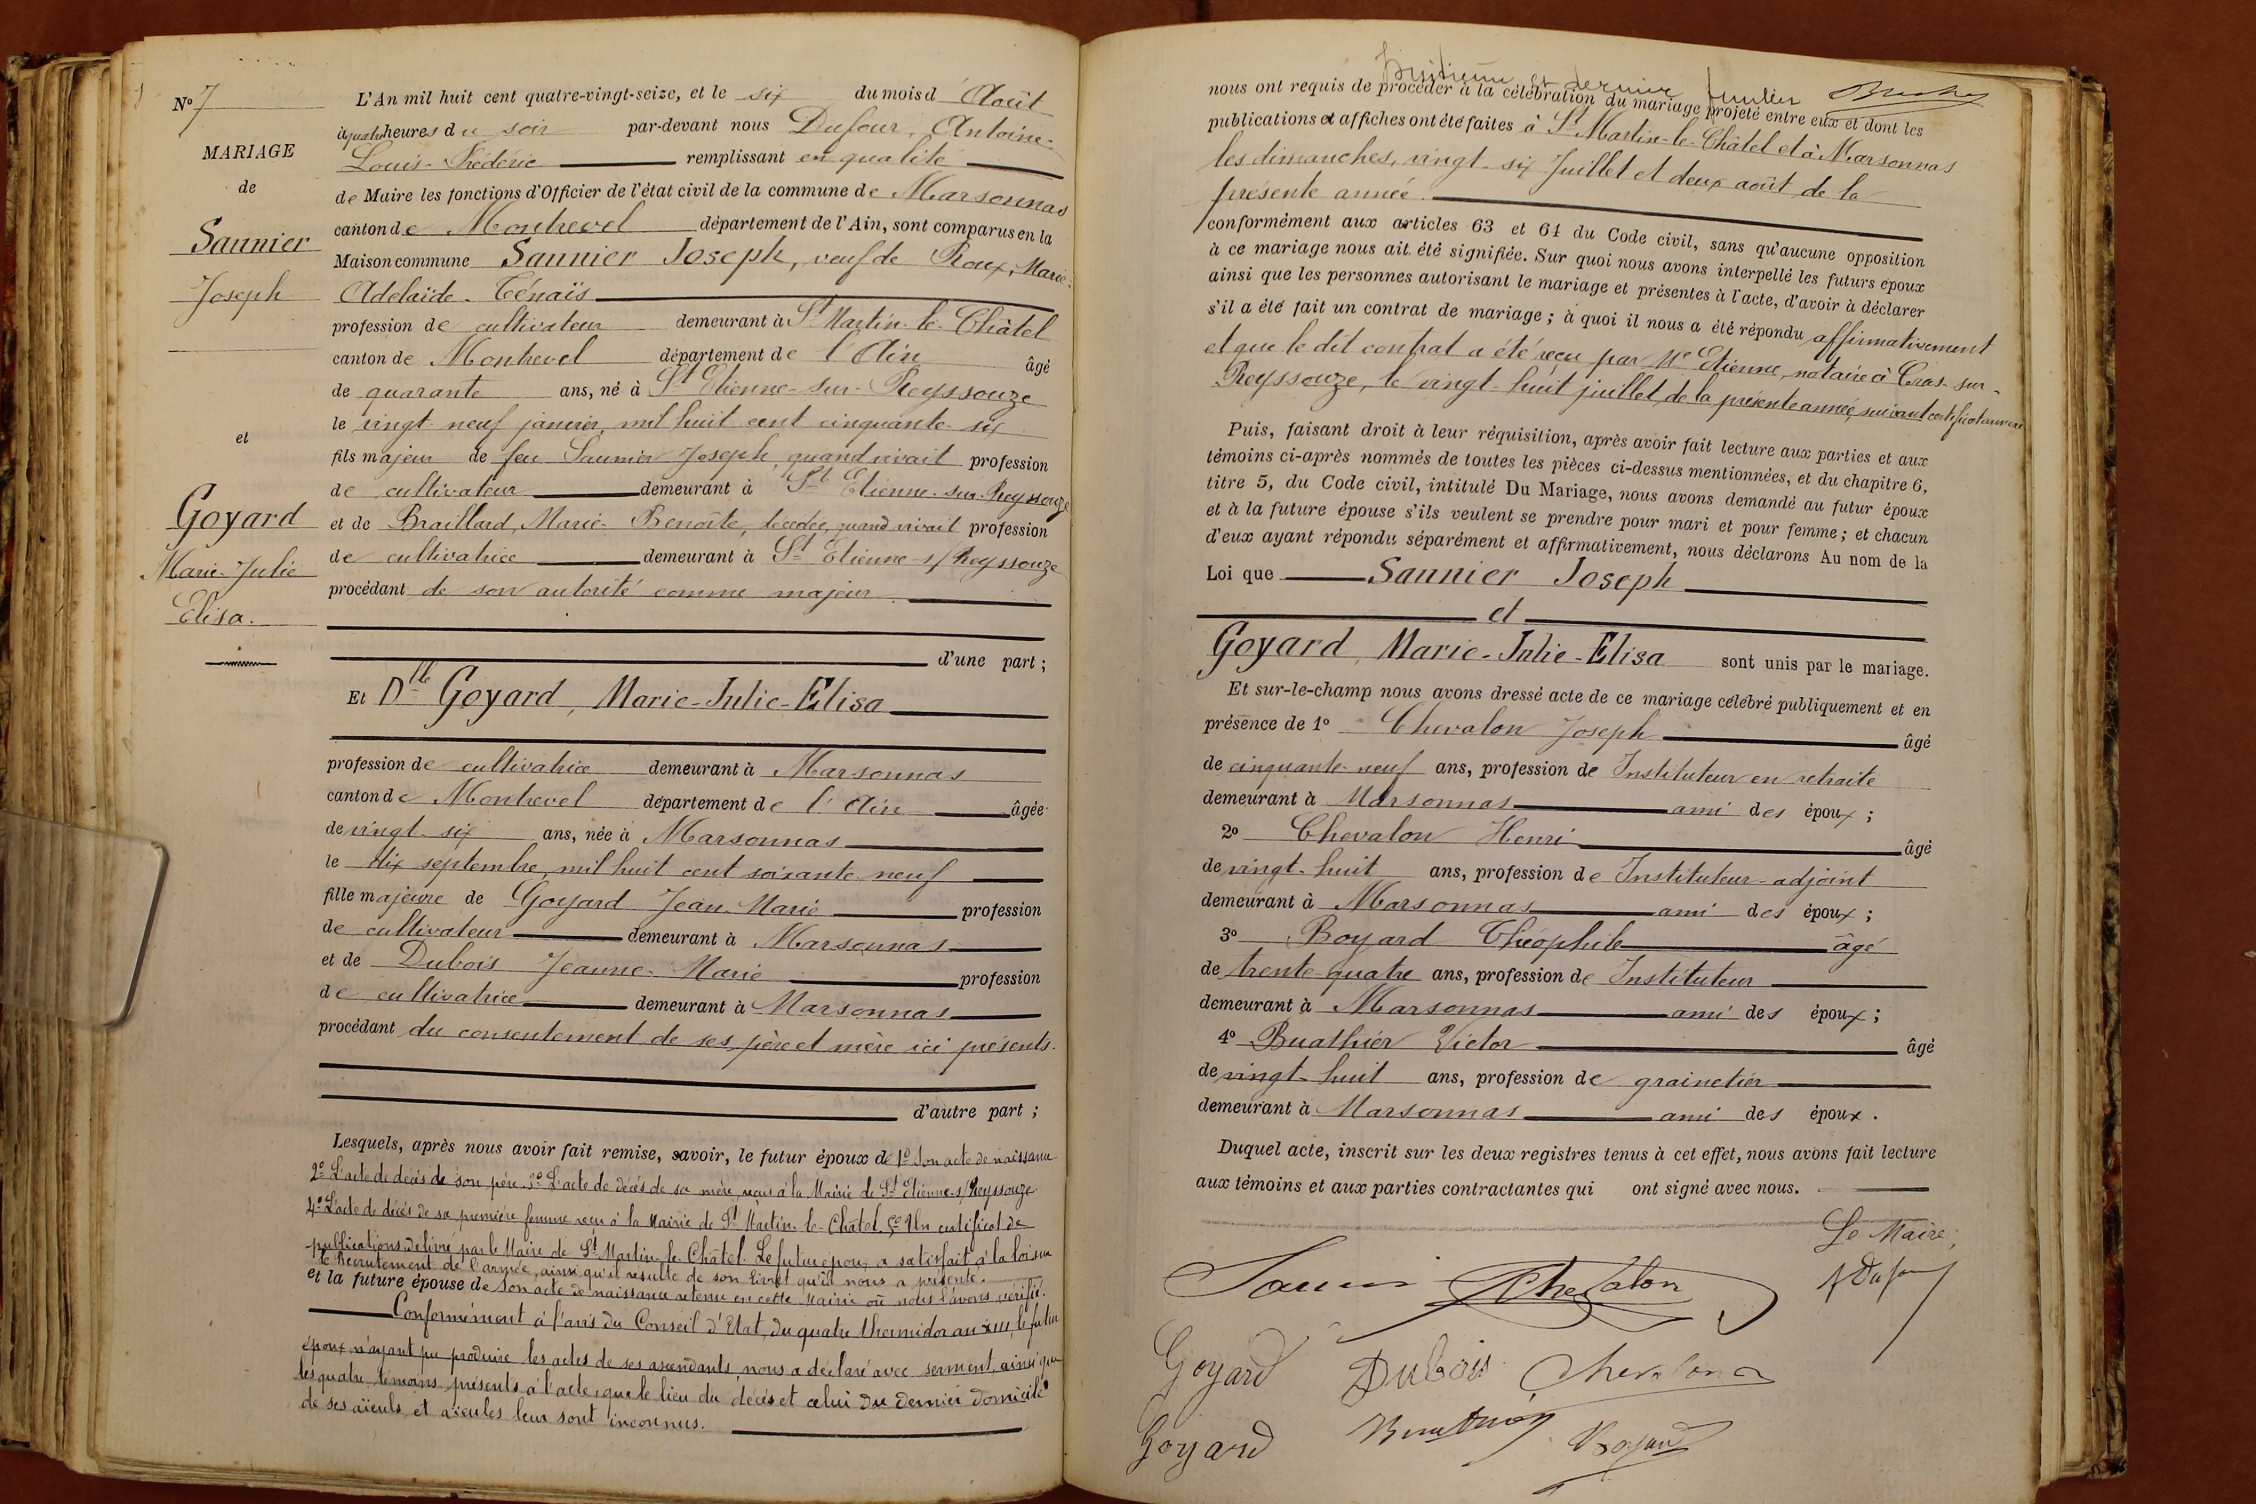 N° 7
MARIAGE
de
Saunier
Joseph
et
Goyard
Marie-Julie
Elisa.
L'An mil huit cent quatre-vingt-seize, et le six du mois d'Août
à quatre heures du soir par-devant nous Dufour, Antoine-
Louis-Frédéric remplissant en qualité
de Maire les fonctions d'Officier de l'état civil de la commune de Marsonnas
canton de Montrevel département de l'Ain, sont comparus en la
Maison commune Saunier Joseph, veuf de Roux, Marie-
Adelaïde-Ténaïs
profession de cultivateur demeurant à St Martin-le-Châtel
canton de Montrevel département de l'Ain âgé
de quarante ans, né à St Etienne-sur-Reyssouze
le vingt-neuf janvier, mil huit cent cinquante-six
fils majeur de feu Saunier Joseph, quand vivait profession
de cultivateur demeurant à St Etienne-sur-Reyssouze
et de Braillard, Marie-Benoîte, décédée, quand vivait profession
de cultivatrice demeurant à St Etienne s/Reyssouze
procédant de son autorité comme majeur
d'une part ;
Et Dlle Goyard, Marie-Julie-Elisa
profession de cultivatrice demeurant à Marsonnas
canton de Montrevel département de l'Ain âgée
de vingt-six ans, née à Marsonnas
le dix septembre, mil huit cent soixante-neuf
fille majeure de Goyard Jean-Marie profession
de cultivateur demeurant à Marsonnas
et de Dubois Jeanne-Marie profession
de cultivatrice demeurant à Marsonnas
procédant du consentement de ses père et mère ici présents.
d'autre part ;
Lesquels, après nous avoir fait remise, savoir, le futur époux de 1° Son acte de naissance
2° L'acte de décès de son père. 3° L'acte de décès de sa mère, reçus à la Mairie de St Etienne-s/Reyssouze
4° L'acte de décès de sa première femme reçu à la Mairie de St Martin-le-Châtel. 5° Un certificat de
publications délivré par le Maire de St Martin-le-Châtel. Le futur époux a satisfait à la loi sur
le recrutement de l'armée, ainsi qu'il résulte de son livret qu'il nous a présenté.
et la future épouse de Son acte de naissance retenu en cette Mairie où nous l'avons vérifié.
Conformément à l'avis du Conseil d'Etat, du quatre thermidor an XIII, le futur
époux n'ayant pu produire les actes de ses ascendants, nous a déclaré avec serment, ainsi que
les quatre témoins présents à l'acte, que le lieu du décès et celui du dernier domicile
de ses aïeuls et aïeules leur sont inconnus.
huitième et dernier feuillet
nous ont requis de procéder à la célébration du mariage projeté entre eux et dont les
publications et affiches ont été faites à St Martin-le-Châtel et à Marsonnas
les dimanches, vingt-six Juillet et deux août de la
présente année.
conformément aux articles 63 et 64 du Code civil, sans qu'aucune opposition
à ce mariage nous ait été signifiée. Sur quoi nous avons interpellé les futurs époux
ainsi que les personnes autorisant le mariage et présentes à l'acte, d'avoir à déclarer
s'il a été fait un contrat de mariage ; à quoi il nous a été répondu affirmativement
et que le dit contrat a été reçu par Me Etienne, notaire à Cras-sur-
Reyssouze, le vingt-huit juillet de la présente année, suivant certificat
Puis, faisant droit à leur réquisition, après avoir fait lecture aux parties et aux
témoins ci-après nommés de toutes les pièces ci-dessus mentionnées, et du chapitre 6,
titre 5, du Code civil, intitulé Du Mariage, nous avons demandé au futur époux
et à la future épouse s'ils veulent se prendre pour mari et pour femme ; et chacun
d'eux ayant répondu séparément et affirmativement, nous déclarons Au nom de la
Loi que Saunier Joseph
et
Goyard, Marie-Julie-Elisa sont unis par le mariage.
Et sur-le-champ nous avons dressé acte de ce mariage célébré publiquement et en
présence de 1° Chevalon Joseph âgé
de cinquante-neuf ans, profession de Instituteur en retraite
demeurant à Marsonnas ami des époux ;
2° Chevalon Henri âgé
de vingt-huit ans, profession de Instituteur-adjoint
demeurant à Marsonnas ami des époux ;
3° Boyard Théophile âgé
de trente-quatre ans, profession de Instituteur
demeurant à Marsonnas ami des époux ;
4° Buathier Victor âgé
de vingt-huit ans, profession de grainetier
demeurant à Marsonnas ami des époux.
Duquel acte, inscrit sur les deux registres tenus à cet effet, nous avons fait lecture
aux témoins et aux parties contractantes qui ont signé avec nous.
Le Maire,
Chevalon
Goyard Dubois Chevalon
Goyard Buathier Boyard